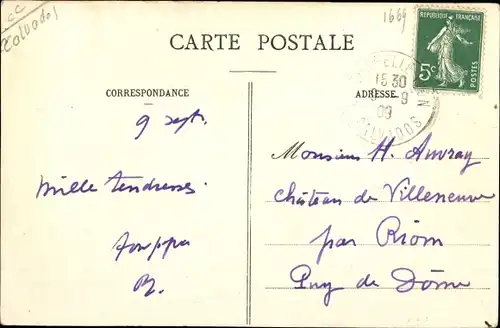 CC
Calvados
1669
CARTE POSTALE
RÉPUBLIQUE FRANÇAISE
5c
POSTES
15 30
9
09
CALVADOS
CORRESPONDANCE
ADRESSE
9 sept.
Mille tendresses.
Monsieur H. Auvray
Château de Villeneuve
par Riom
Puy de Dôme